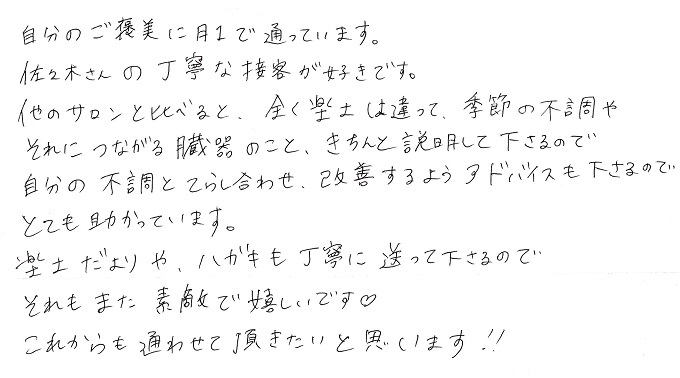 自分のご褒美に月1で通っています。
佐々木さんの丁寧な接客が好きです。
他のサロンと比べると、全く楽土は違って、季節の不調や
それにつながる臓器のこと、きちんと説明して下さるので
自分の不調とてらし合わせ、改善するようアドバイスも下さるので
とても助かっています。
楽土だよりや、ハガキも丁寧に送って下さるので
それもまた素敵で嬉しいです♡
これからも通わせて頂きたいと思います!!